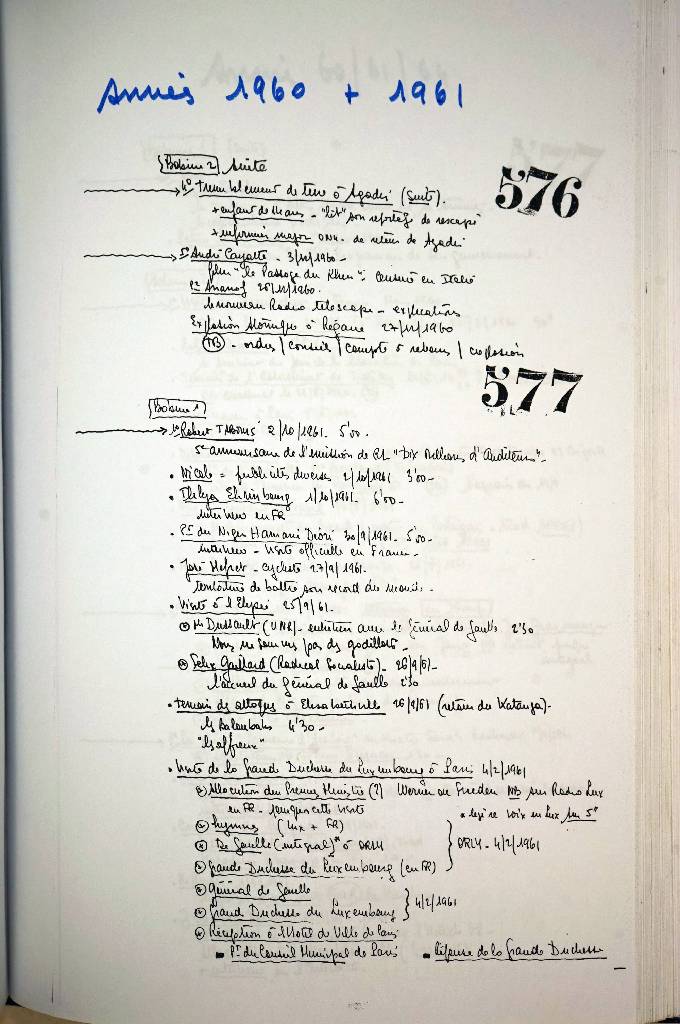 Années 1960 + 1961
Bobine 2 suite
576
4° Tremblement de terre à Agadir (suite).
+ enfant de Mans - "lit" son reportage de rescapé
+ infirmier major ONU. de retour de Agadir
5° André Cayatte - 3/11/1960 -
film "le Passage du Rhin": censuré en Italie
Pr Ananof 26/11/1960.
le nouveau Radio telescope - explications
Explosion Atomique à Regane 27/12/1960
TB - ordres / conseil / compte à rebours / explosion
577
Bobine 1
1° Robert TABOUIS 2/10/1961. 5'00.
5e anniversaire de l'émission de RL "Dix Millions d'Auditeurs" -
• Nicole = publicités diverses 2/10/1961 3'00 -
• Ilya Ehrenbourg 1/10/1961. 6'00 -
interview en FR
• Pt du Niger Hamani Diori 30/9/1961 - 5'00 -
interview - visite officielle en France -
• José Meffret - cycliste 27/9/1961.
tentative de battre son record du monde -
• Visite à l'Elysée 25/9/61.
Mr Dussault (UNR) - entretien avec le Général de Gaulle 2'30
Nous ne sommes pas des godillots -
Felix Gaillard (Radical Socialiste) - 26/9/61 -
l'accueil du Général de Gaulle 2'30
• témoin des attaques à Elisabethville 26/9/61 (retour du Katanga) -
les Baloubas 4'30 -
"les affreux"
• Visite de la Grande Duchesse du Luxembourg à Paris 4/2/1961
Allocution du Premier Ministre (?) Werner sur Radio Lux
en FR - pourquoi cette visite
Hymnes (Lux + FR)
De Gaulle (intégral) * à ORLY
ORLY - 4/2/1961
Grande Duchesse du Luxembourg (en FR)
Général de Gaulle
4/2/1961
Grand Duchesse du Luxembourg
Réception à l'Hotel de Ville de Paris
Pt du Conseil Municipal de Paris Réponse de la Grande Duchesse